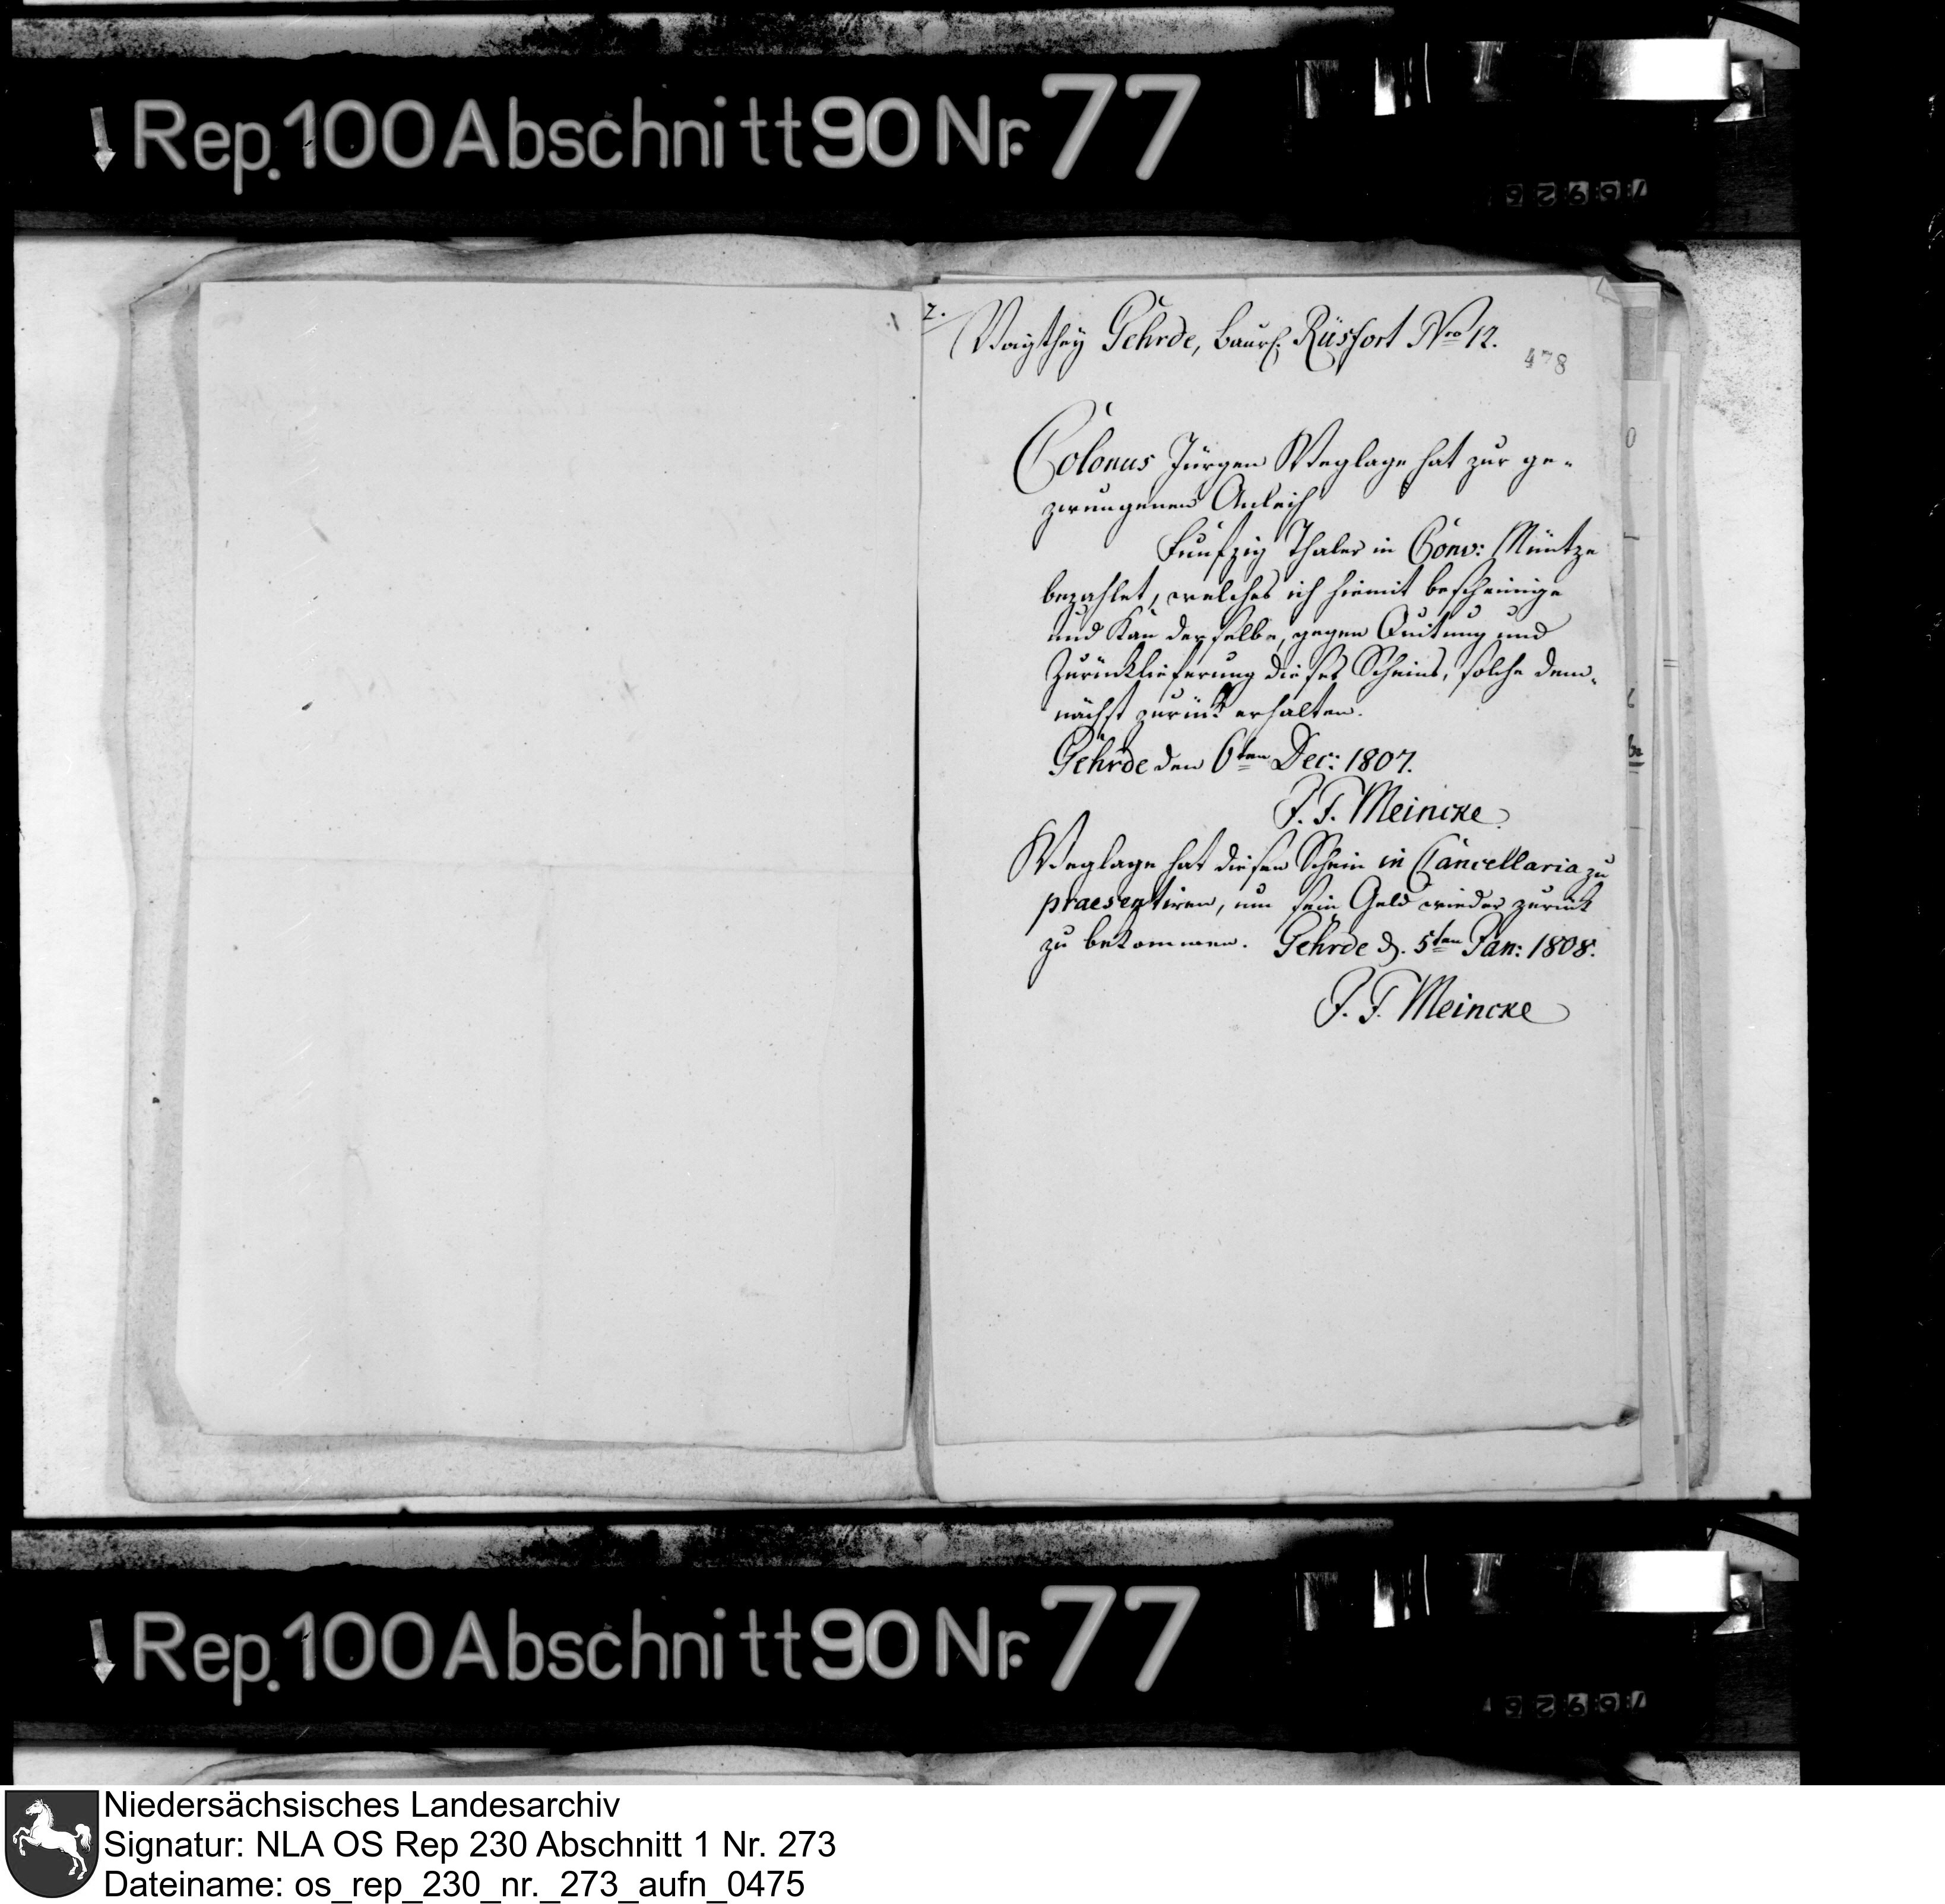 Rep. 100 Abschnitt 90 Nr. 77
2.
Voigthey Gehrde, Baursch. Rüsfort Nro 12.
478
Colonus Jürgen Weglage hat zur ge-
zwungenen Anleih
Funfzig Thaler in Conv: Müntze
bezahlet, welches ich hiemit bescheinige
und kan derselbe, gegen Quitung und
Zurücklieferung dieses Scheins, solche dem-
nächst zurük erhalten.
Gehrde den 6ten Dec: 1807.
J. F. Meincke
Weglage hat diesen Schein in Cancellaria zu
praesentiren, um sein Geld wieder zurük
zu bekommen. Gehrde d. 5ten Jan: 1808.
J. F. Meincke
Rep. 100 Abschnitt 90 Nr. 77
Niedersächsisches Landesarchiv
Signatur: NLA OS Rep 230 Abschnitt 1 Nr. 273
Dateiname: os_rep_230_nr._273_aufn_0475